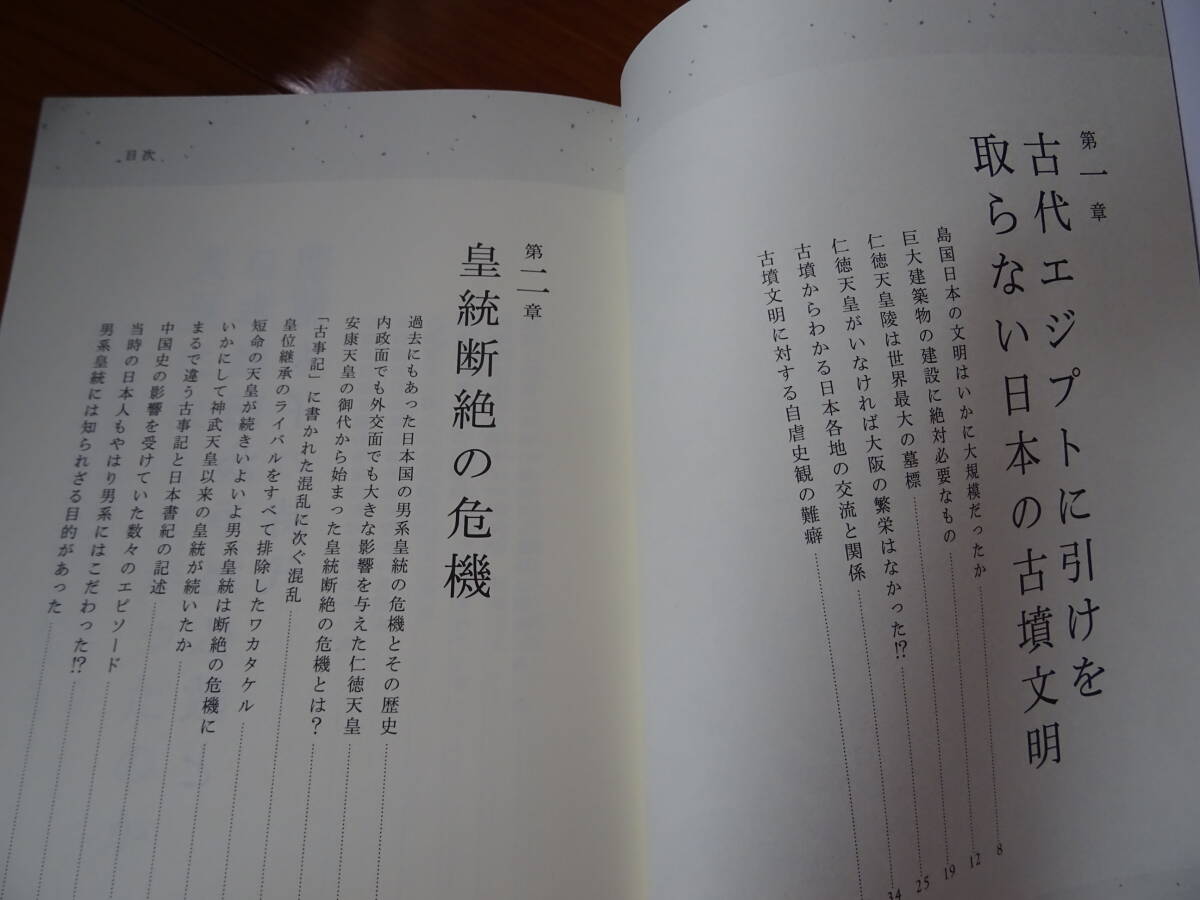 第一章
古代エジプトに引けを
取らない日本の古墳文明
島国日本の文明はいかに大規模だったか 8
巨大建築物の建設に絶対必要なもの 12
仁徳天皇陵は世界最大の墓標 19
仁徳天皇がいなければ大阪の繁栄はなかった!? 25
古墳からわかる日本各地の交流と関係 34
古墳文明に対する自虐史観の難癖
目次
第二章
皇統断絶の危機
過去にもあった日本国の男系皇統の危機とその歴史
内政面でも外交面でも大きな影響を与えた仁徳天皇
安康天皇の御代から始まった皇統断絶の危機とは？
「古事記」に書かれた混乱に次ぐ混乱
皇位継承のライバルをすべて排除したワカタケル
短命の天皇が続きいよいよ男系皇統は断絶の危機に
いかにして神武天皇以来の皇統が続いたか
まるで違う古事記と日本書紀の記述
中国史の影響を受けていた数々のエピソード
当時の日本人もやはり男系にはこだわった!?
男系皇統には知られざる目的があった